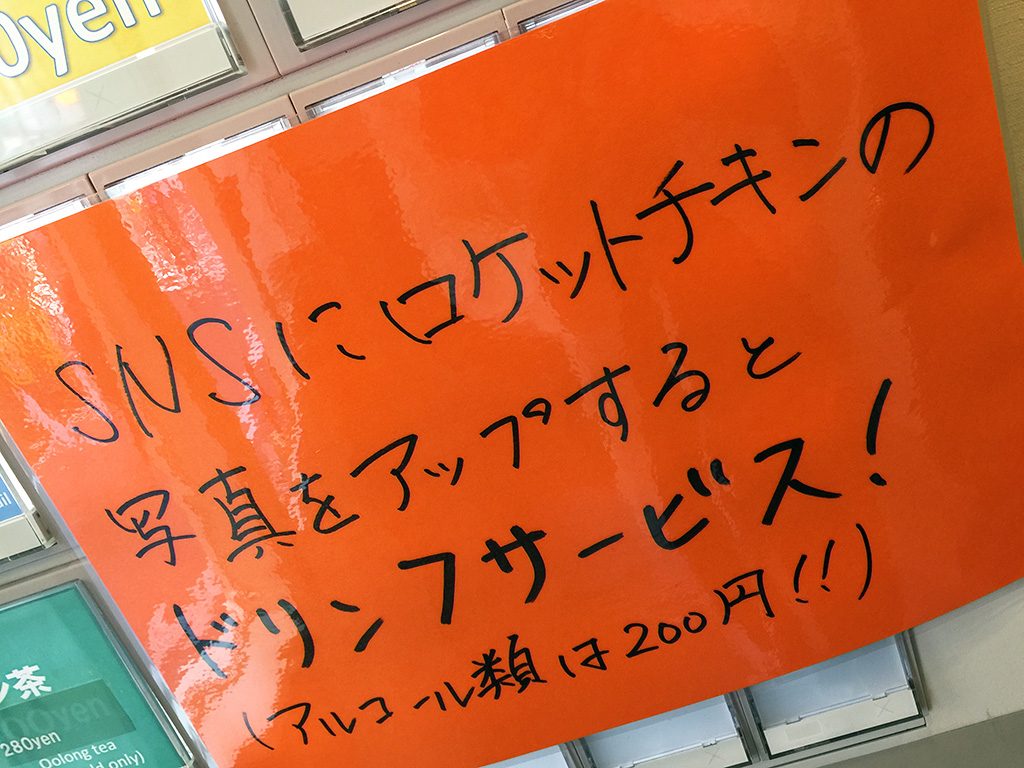 0yen
SNSにロケットチキンの
写真をアップすると
ドリンフサービス!
(アルコール類は200円!!)
茶
00yen
280yen
Oolong tea
only)